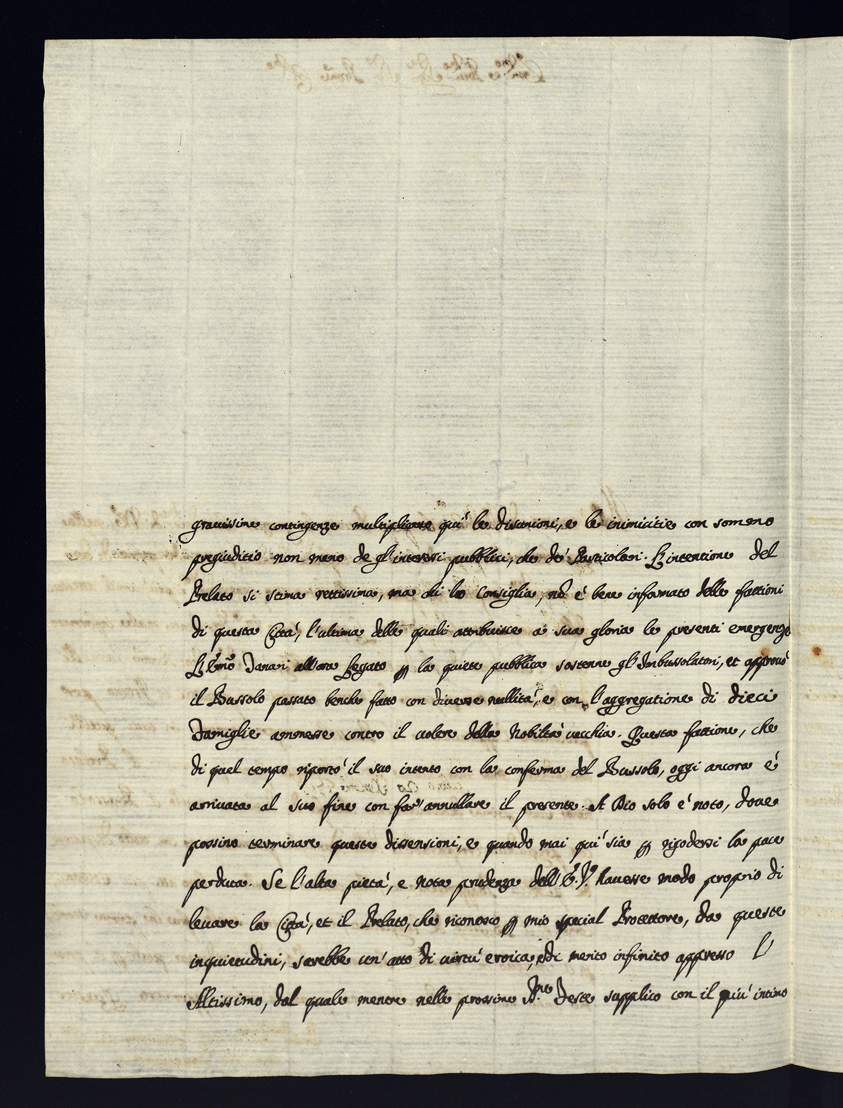 grauissime contingenze multiplicate quì le disunioni, e le inimicitie con sommo
pregiuditio non meno de gl'interessi pubblici, che de' Particolari. L'intentione del
Prelato si stima rettissima, ma chi lo Consiglia, nõ è bene informato delle fattioni
di questa Città, l'ultima delle quali attribuisce à sua gloria le presenti emergenze
L'Em̃o all'ora Legato ꝑ la quiete pubblica sostenne gl'Imbussolatori, et approuò
il Bussolo passato benche fatto con diuerse nullità, e con l'aggregatione di dieci
Famiglie ammesse contro il uolere della Nobiltà uecchia. Questa fattione, che
di quel tempo riportò il suo intento con la conferma del Bussolo, oggi ancora è
arriuata al suo fine con far' annullare il presente. A Dio solo è noto, doue
possino terminare queste dissensioni, e quando mai quì sia ꝑ rigodersi la pace
perduta. Se l'alta pietà, e nota prudenza dell'E. V. hauesse modo proprio di
leuare la Città, et il Prelato, che riconosco ꝑ mio special Protettore, da queste
inquietudini, sarebbe un'atto di uirtù eroica, e di merito infinito appresso l'
Altissimo, dal quale mentre nelle prossime Feste supplico con il più intimo